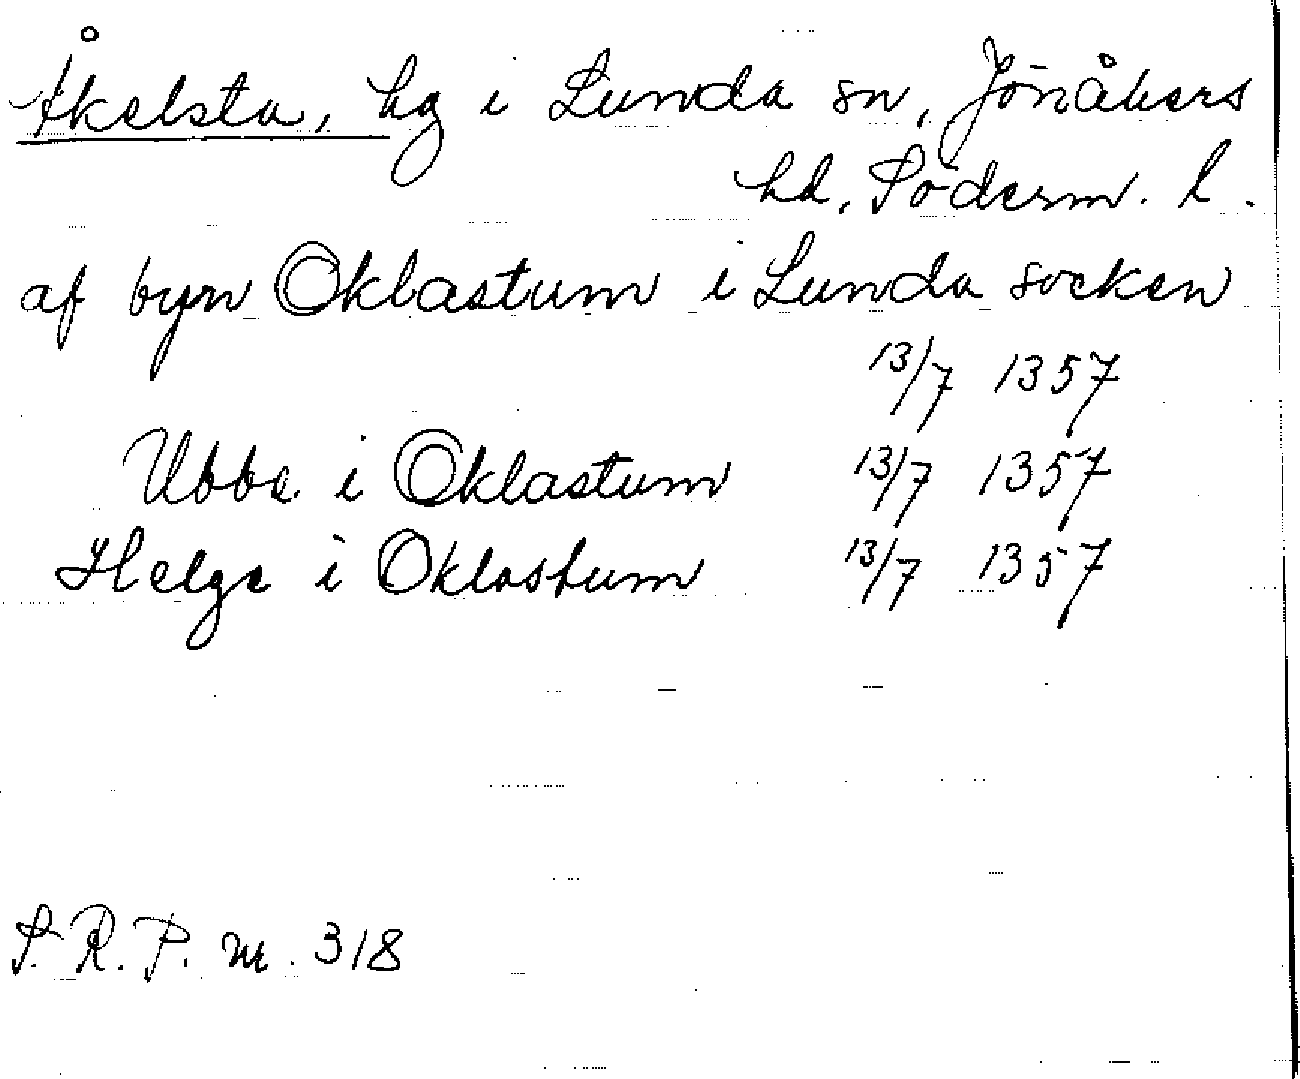 Åkelsta, hg i Lunda sn, Jönåkers
hd, Söderm. l.
af byn Oklastum i Lunda socken
13/7 1357
Ubbe i Oklastum 13/7 1357
Helge i Oklastum 13/7 1357
S.R.P. nr. 318